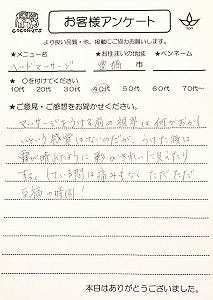 COCONUTS
お客様アンケート
より良い品質・他、掲載にご協力お願いします。
★メニュー名 ★お住まいの地域 ★ペンネーム
ヘッドマッサージ 豊橋 市
★ ○を付けてください
10代 20代 30代 40代 50代 60代 70代～
★ご意見・ご感想をお聞かせください。
マッサージをうける前の視界は何がおかし
いという感覚はないのだが、うけた後は
霧が晴れたように影がきれいに見えたり
する。している間は痛みもなく、ただただ
至福の時間！
本日はありがとうございました。